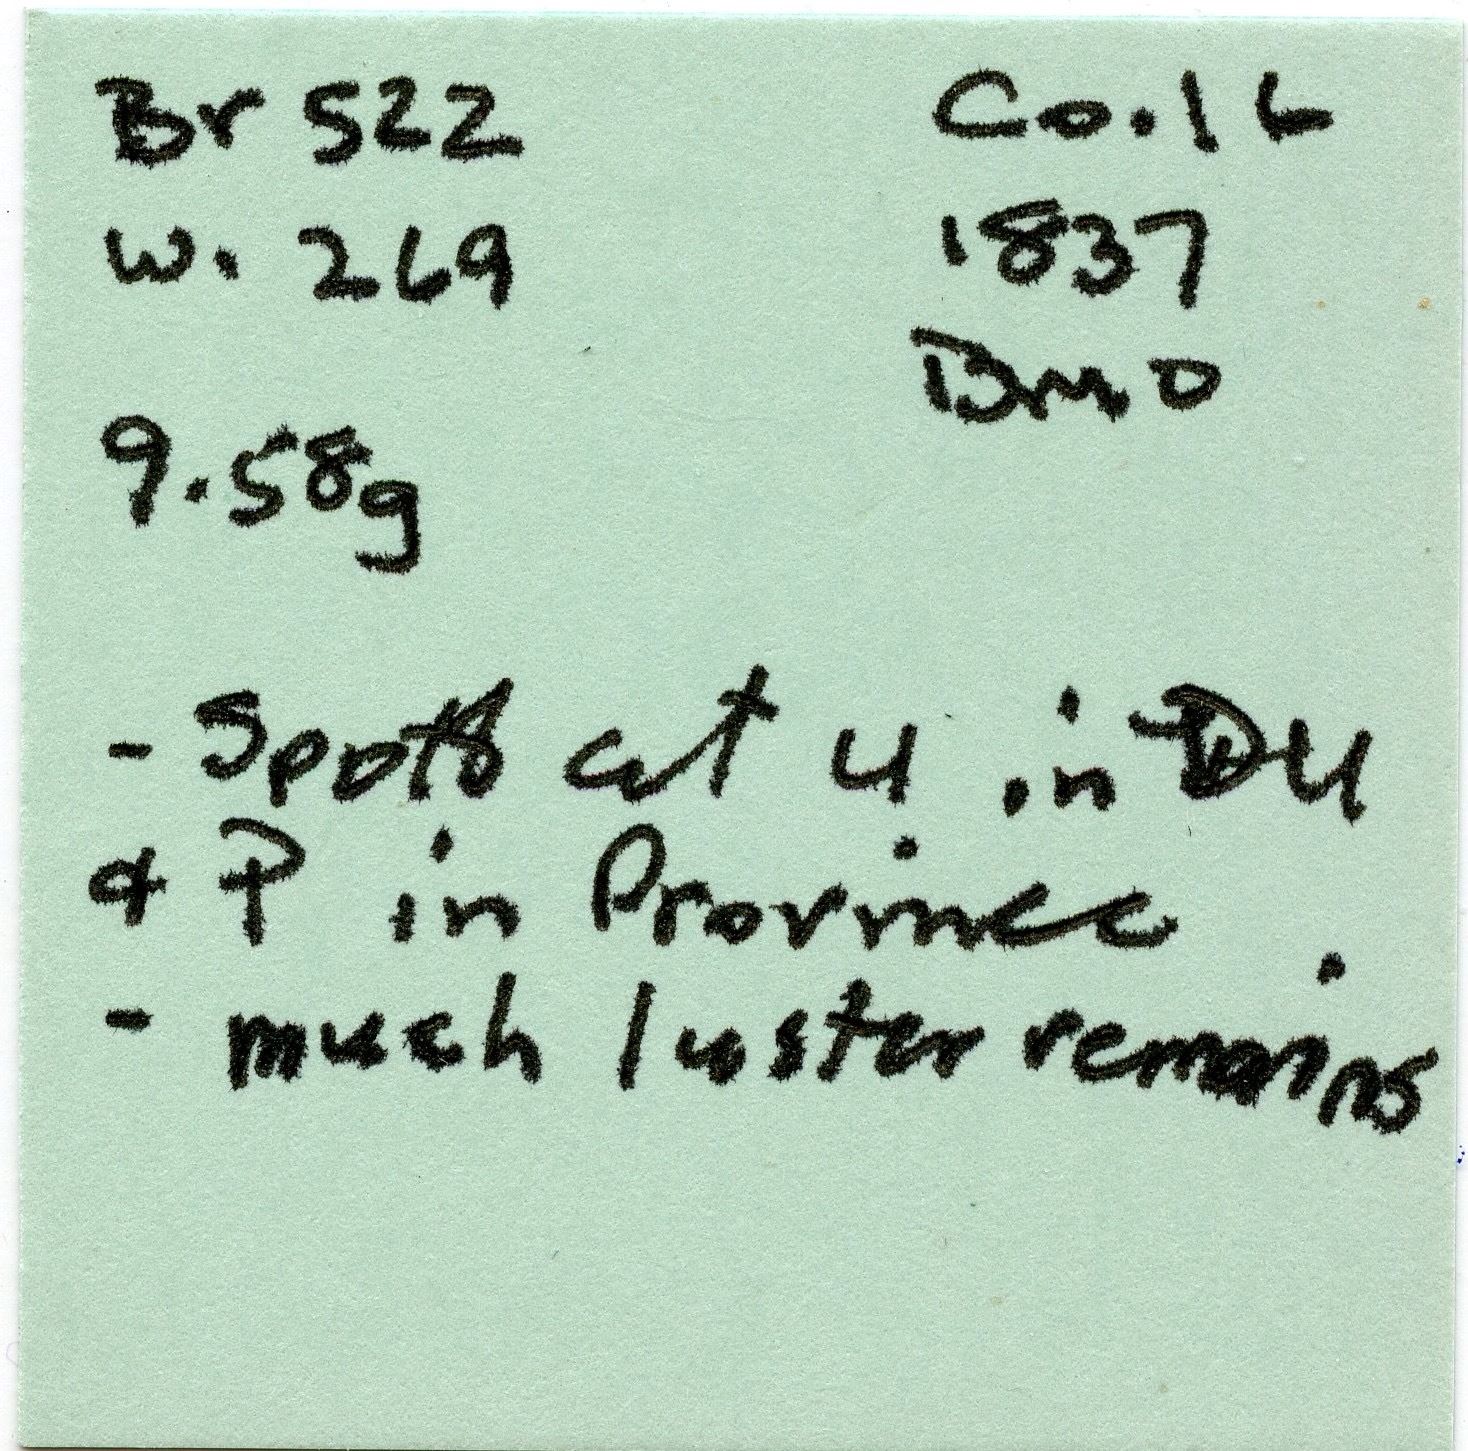 Br 522
Co. 16
W. 269
1837
BMO
9.58g
- Spots at U in DU
& P in Province
- much luster remains